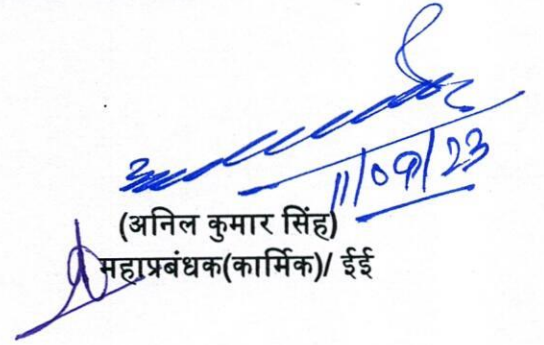 11/09/23
(अनिल कुमार सिंह)
महाप्रबंधक(कार्मिक)/ ईई